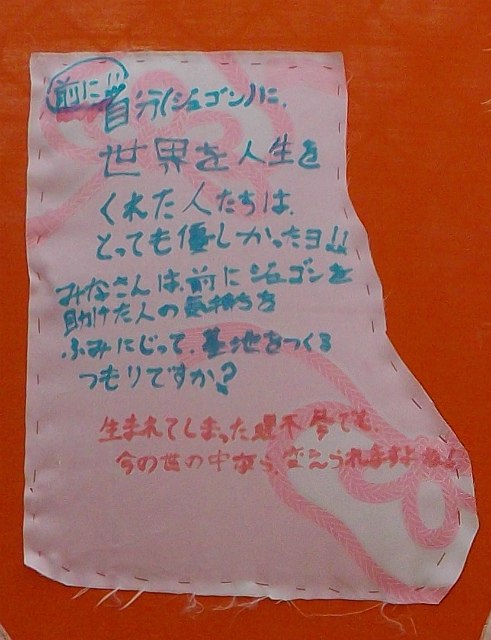 前に!! 自分(ジュゴン)に、
世界を人生を
くれた人たちは、
とっても優しかったヨ!!
みなさんは、前にジュゴンを
助けた人の気持ちを
ふみにじって、基地をつくる
つもりですか?
生まれてしまった でも、
今の世の中なら、変えられますよね!